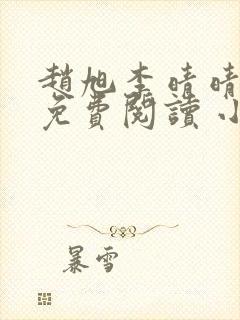 趙旭李晴晴
免費閱讀小
暴雪